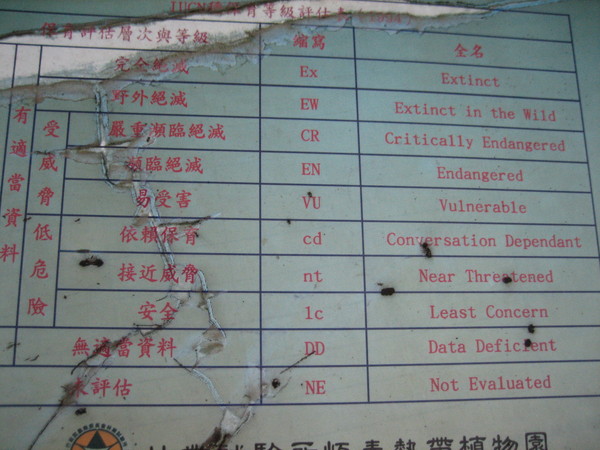 IUCN 保育等級評估
保育評估層次與等級 縮寫 全名
完全絕滅 Ex Extinct
野外絕滅 EW Extinct in the Wild
有適當資料
受威脅
嚴重瀕臨絕滅 CR Critically Endangered
瀕臨絕滅 EN Endangered
易受害 VU Vulnerable
低危險
依賴保育 cd Conversation Dependant
接近威脅 nt Near Threatened
安全 lc Least Concern
無適當資料 DD Data Deficient
未評估 NE Not Evaluated
驗所恆春熱帶植物園